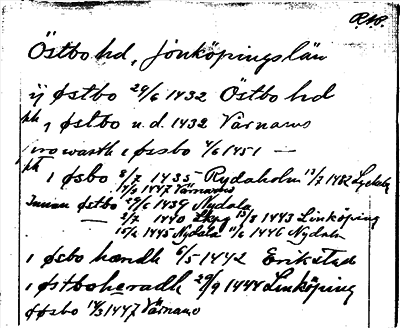 R.W.
Östbo hd, Jönköpings län
ij Østbo 29/6 1432 Östbo hd
ph, i Østbo u.d. 1432 Värnamo
pro warth i Øssbo 4/6 1451 —
ph
i Øsbo 8/7 1435 – Rydaholm 13/7 1482 Rydaholm
14/3 1447 Värnamo
Innan Østbo 29/6 1439 Nydala
— 2/7 1440 Lkpg 15/8 1443 Linköping
15/6 1445 Nydala 11/6 1446 Nydala
i Øsbo hændh 6/5 1442 Erikstad
i Østboheradh 29/9 1444 Linköping
Østbo 14/3 1447 Värnamo